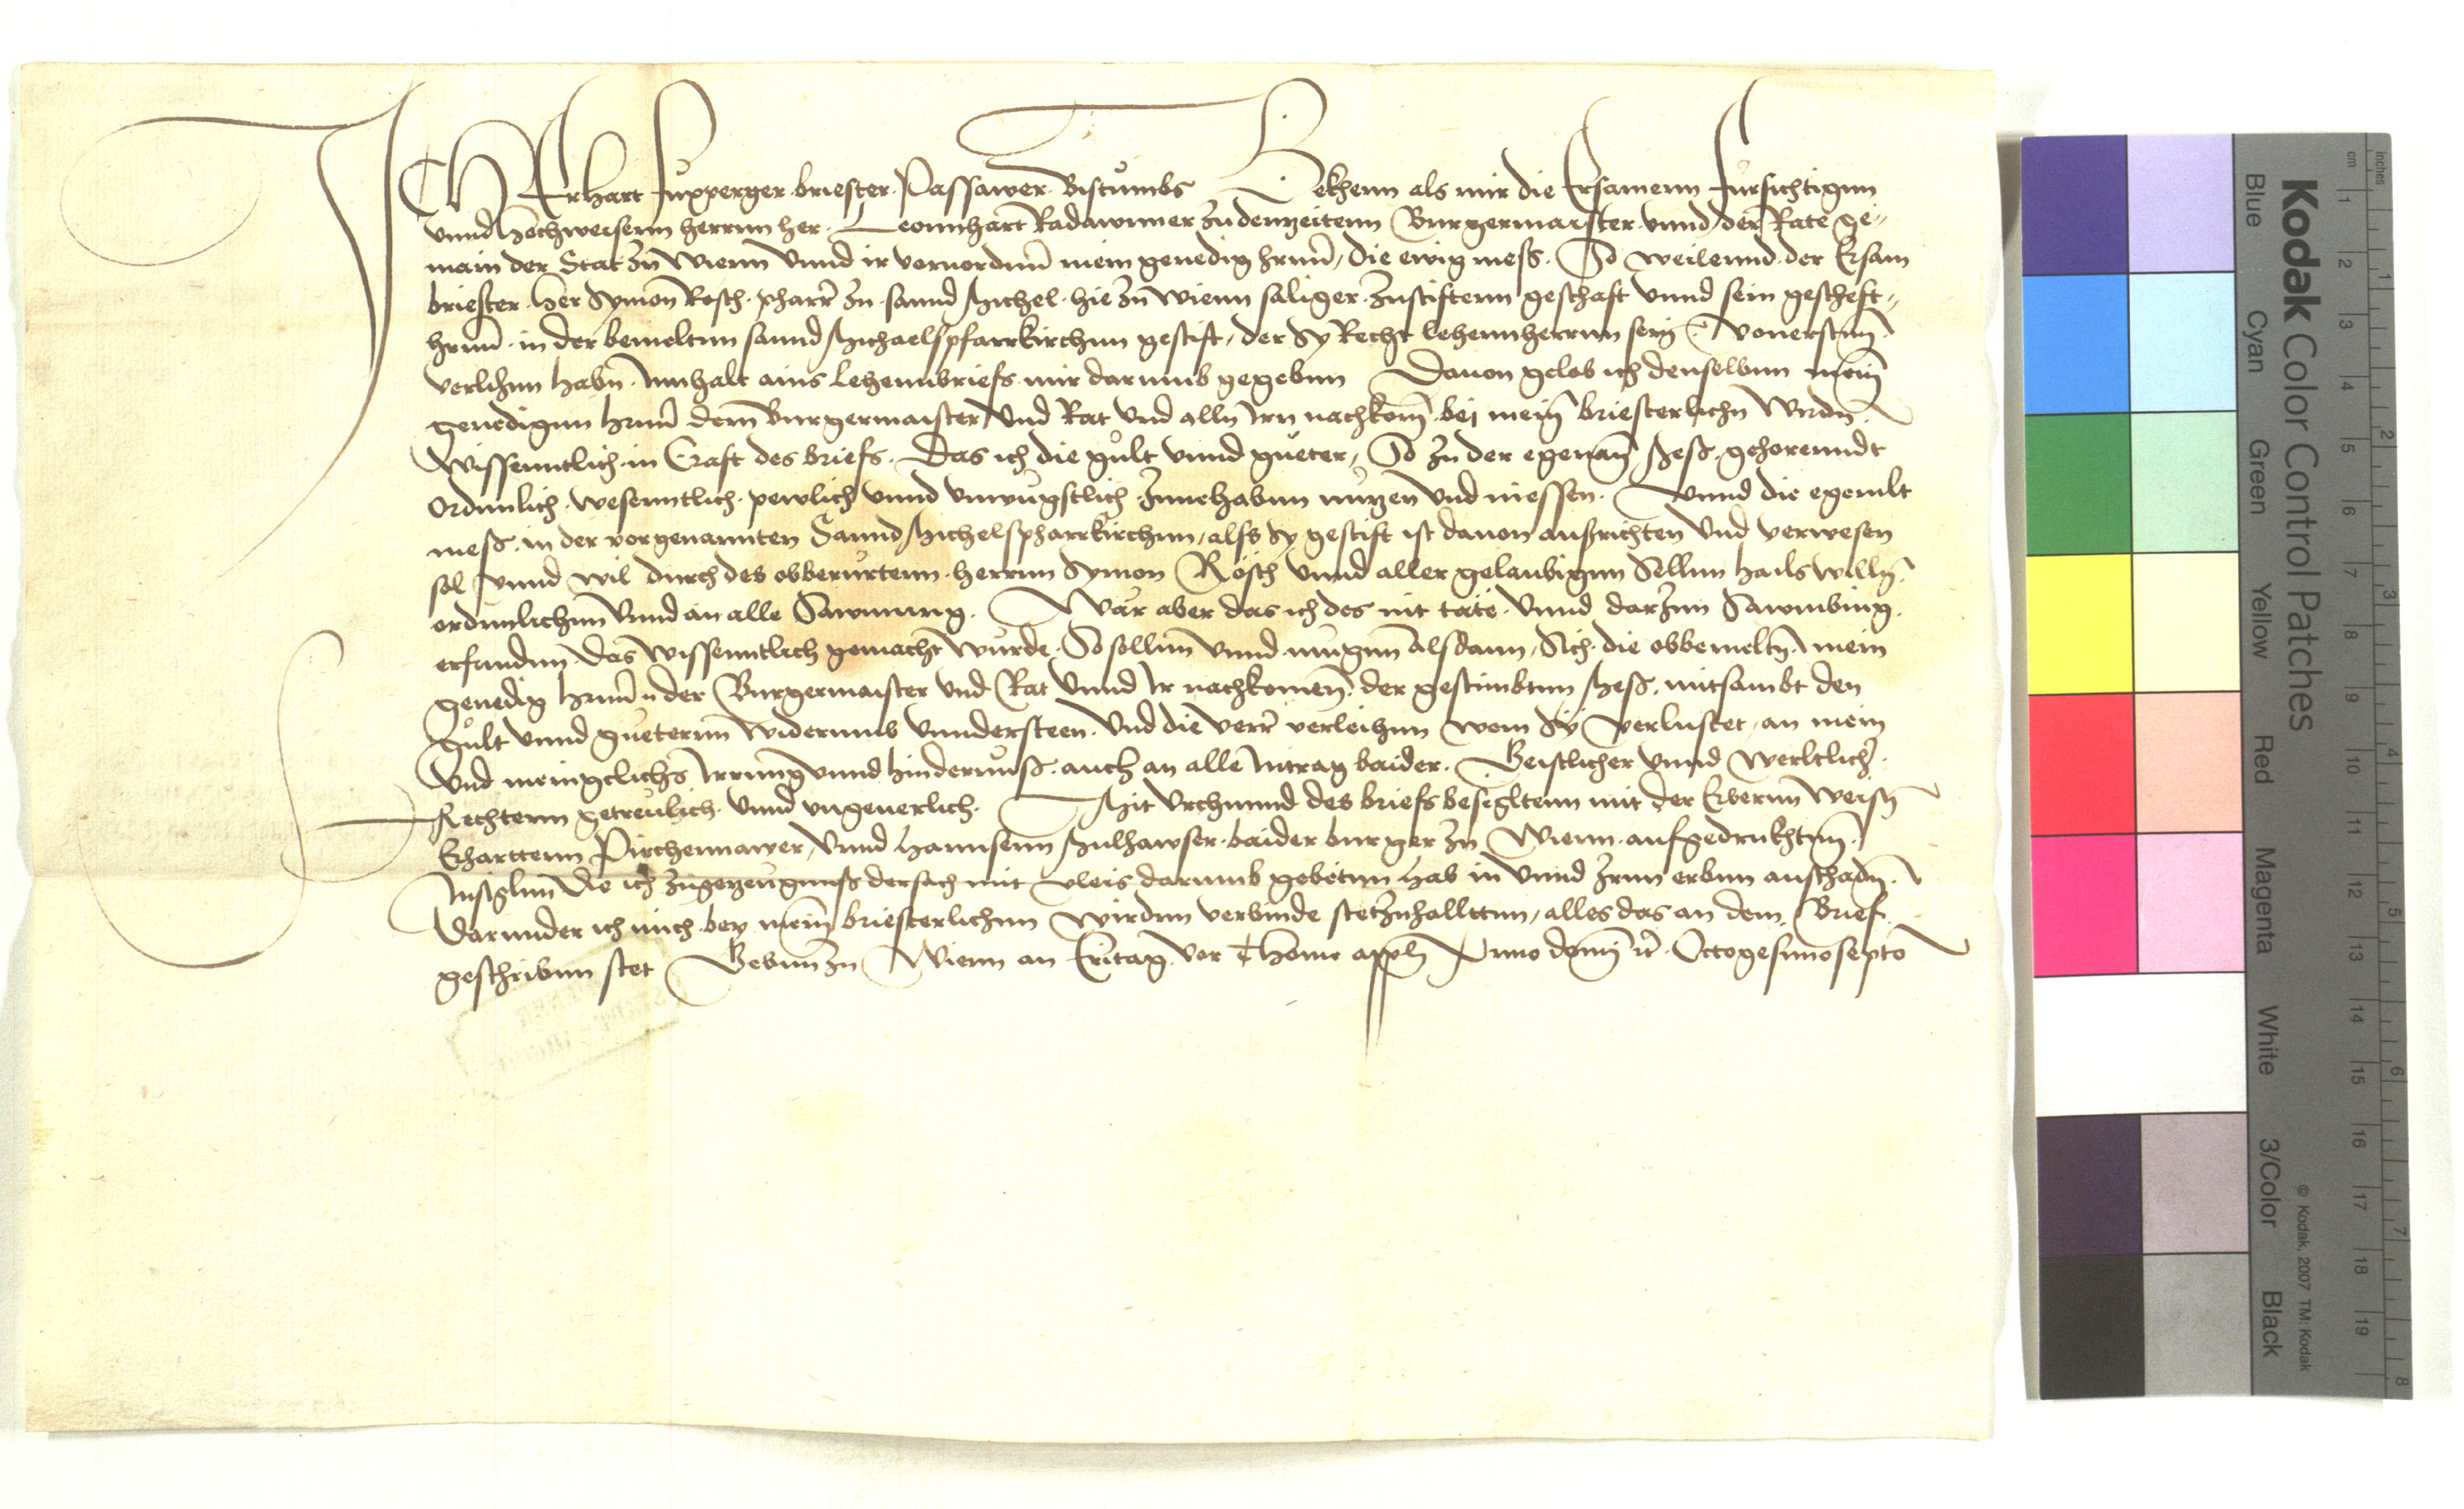 ICH Erhart Huxperger briester Passawer Bistumbs Bekhenn als mir die Ersamenn fursichtigenn
vnnd hochweisenn herrnn her Leonnhart Radawnner zu denn zeitenn Burgermaister vnnd der Rate ge-
main der Stat zu Wienn vnnd ir vorvordnn mein genedig hrnn, die ewig mess So weilennd der Ersam
briester her Symon Rosch pharr zu sannd Michel hie zu Wienn saliger zustifftenn geschaft vnnd sein gescheft-
hrnn in der bemeltnn sannd Michaelspfarrkirchnn gestift, der Sy Recht lehennherrnn sein vonerstnn
verlihnn habn Innhalt ains lehennbriefs mir darumb gegebnn Dauon gelob ich denselbnn mein
genedignn hrnn dem Burgermaister vnd Rat vnd alln Irn nachkom bei mein briesterlichn wirdn
Wissenntlich in Craft des briefs Das ich die gult vnnd gueter, So zu der egenan Mess gehorenndt
Ordnnlich wesenntlich pewlich vnnd vnwugstlich Innehabnn nuzen vnd niessen Vnnd die egemelt
mess in der vorgenannten Sannd Michelspharrkirchnn, alss Sy gestift ist dauon ausrichten vnd verwesen
sol vnnd wil durch des obberurtenn herrnn Symon Rosch vnnd aller gelaubignn Sellnn hails willn
ordnnlichnn vnnd an alle Sawmung Wär aber das ich des nit täte vnnd darInn Sawmbing
erfundnn das wissenntlich gemacht wurde So sollnn vnnd mugnn alsdann, Sich die obbemeltn mein
genedig hrnn der Burgermaister vnd Rat vnnd Ir nachkomen der gestimbtnn Mess mitsambt den
Gult vnnd gueternn widerumb vnndersteen vnd die verr verleihnn wem Sy verlustet, an mein
vnd meingclichs Irrung vnnd hindernuss auch an alle Intrag baider Geistlicher vnnd Werltlich
Rechtenn getreulich vnnd vngeuerlich Mit vrchunnd des briefs besigltenn mit der Erbernn weisn
Erharttenn Pirchennawer, vnnd Hannsenn Mulhawser baider burger zu Wienn aufgedrukhtnn
Insiglnn die ich zugezeugnnss der sach mit vleis darumb gebetnn hab in vnnd Irnn erbnn anschadn
Darunder ich mich bey mein briesterlichnn wirdnn verbinde stet zuhallttnn, alles das an dem Brief
geschribnn stet Gebnn zu Wienn an Eritag vor Thome appli Anno domi rc Octogesimosepto
Kodak Color Control Patches
Blue Cyan Green Yellow Red Magenta White 3/Color Black
© Kodak, 2007 TM: Kodak
cm 1 2 3 4 5 6 7 8 9 10 11 12 13 14 15 16 17 18 19
inches 1 2 3 4 5 6 7 8